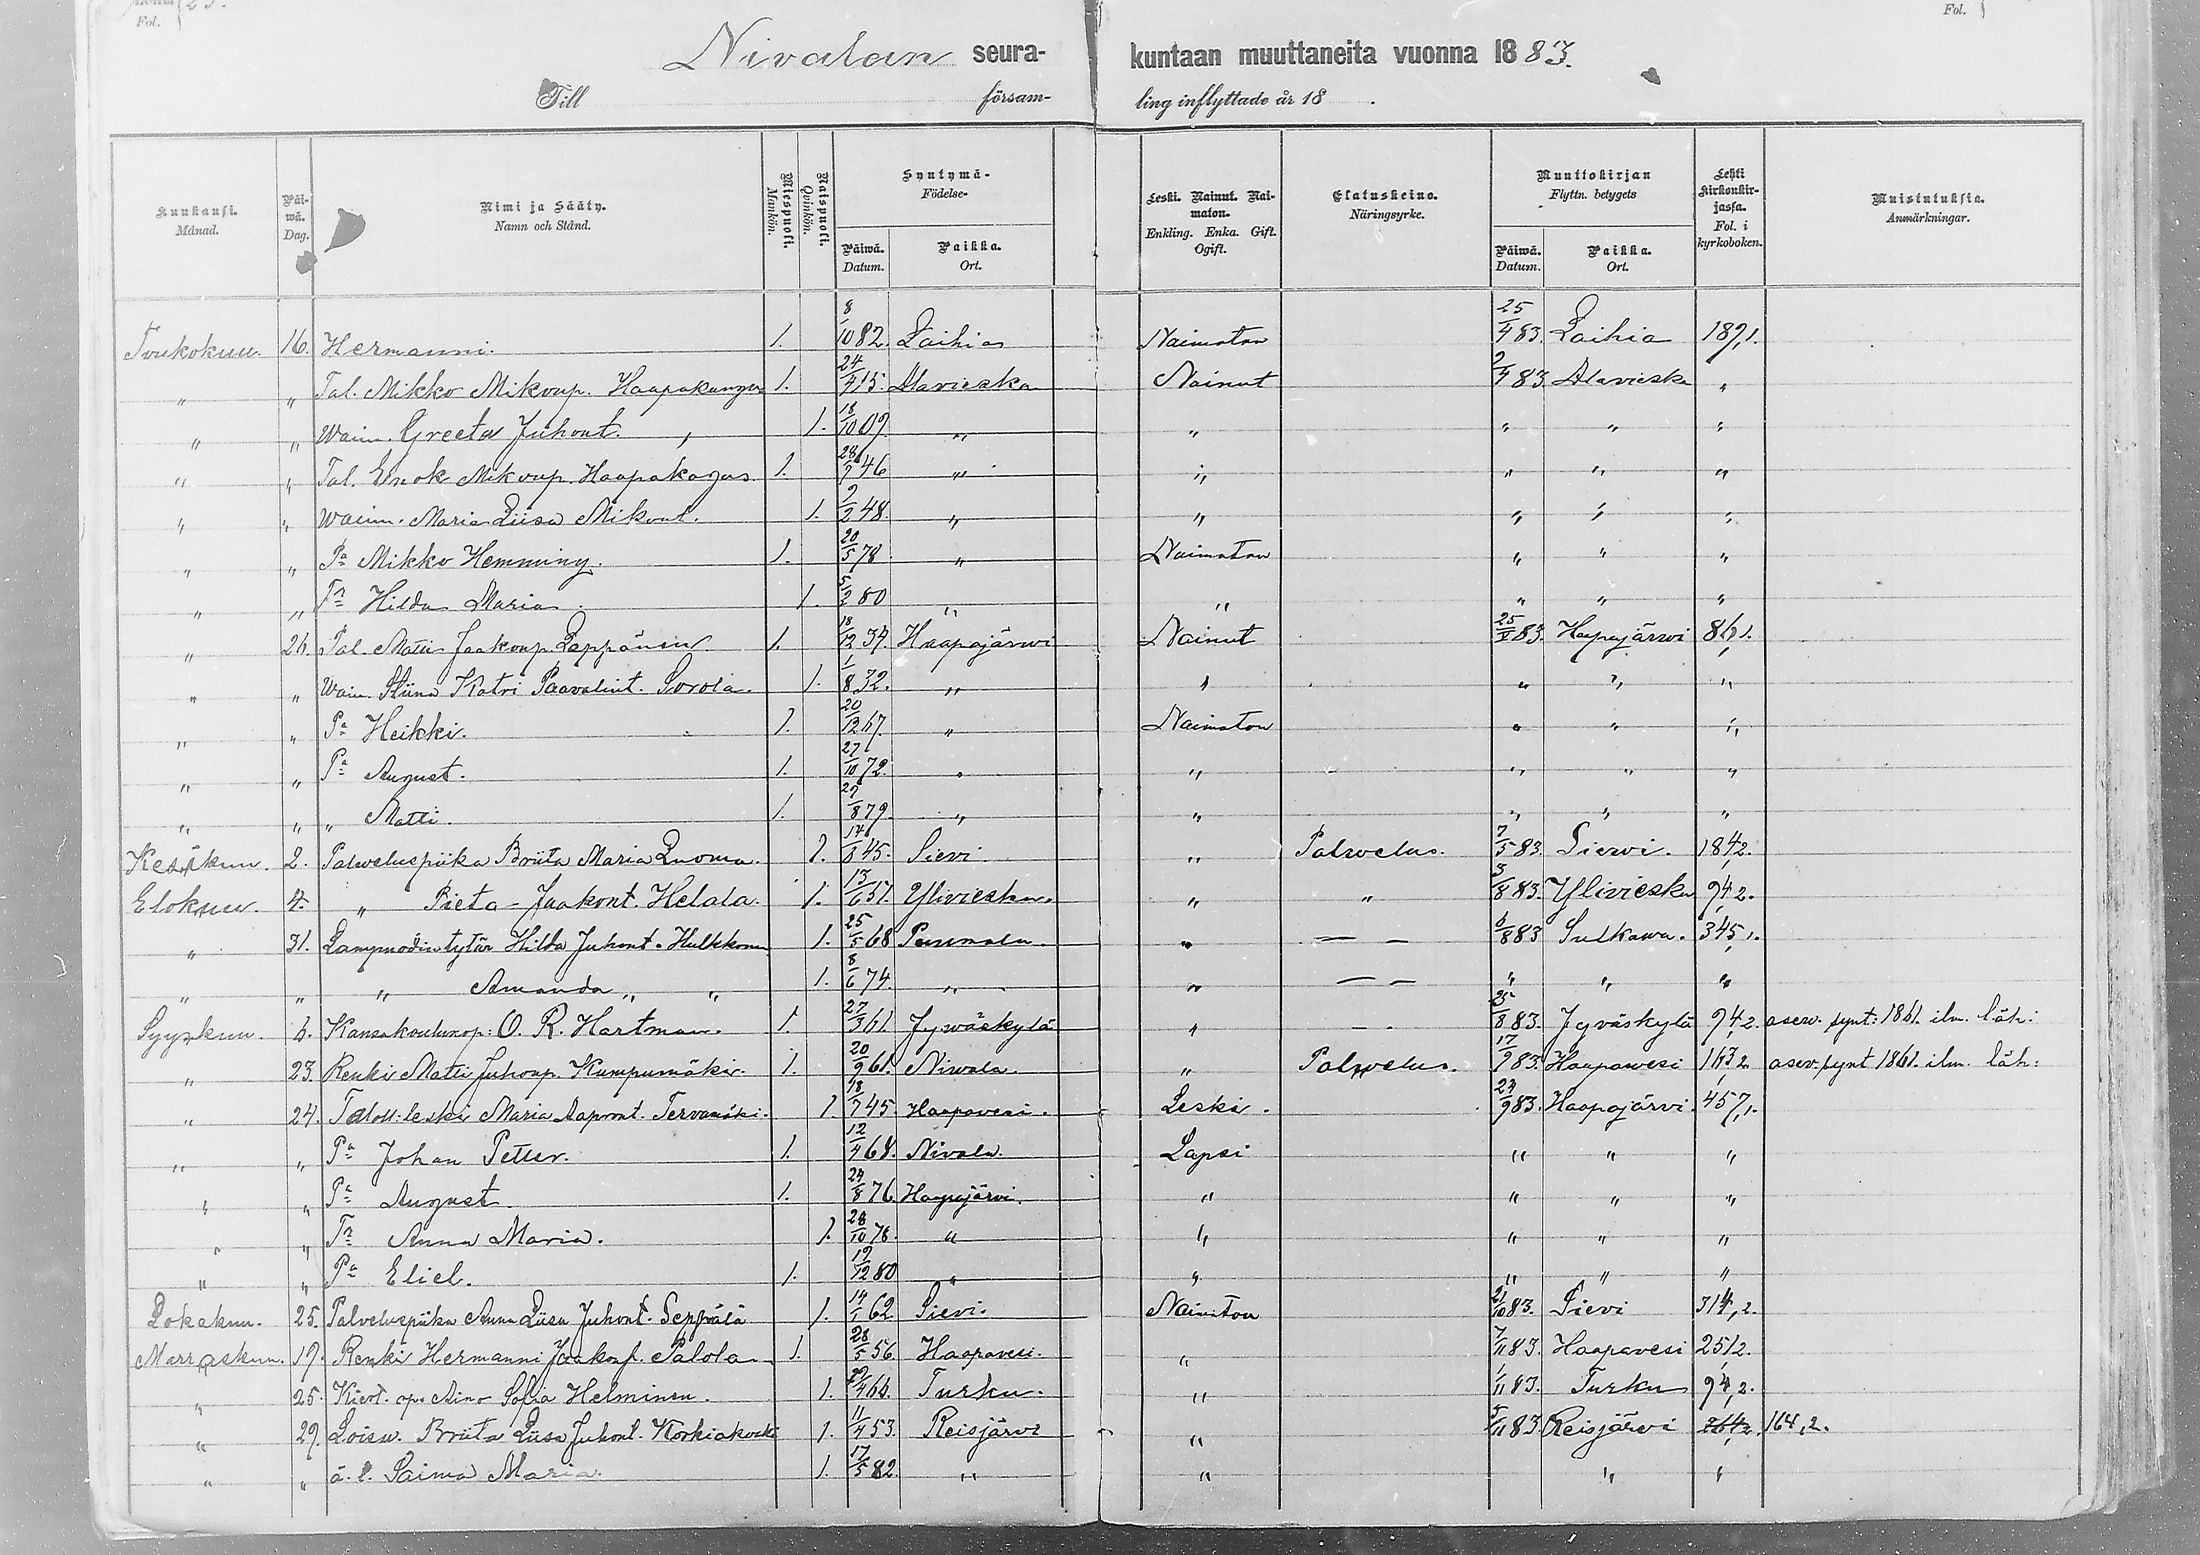 Fol.
Fol.
Nivalan seura- kuntaan muuttaneita vuonna 1883.
Till försam- ling inflyttade år 18 .
Kuukausi. Månad. Päiwä. Dag. Nimi ja Sääty. Namn och Stånd. Miespuoli. Mankön. Naispuoli. Qvinkön. Syntymä- Födelse- Päiwä. Datum. Paikka. Ort. Leski. Nainut. Naimaton. Enkling. Enka. Gift. Ogift. Elatuskeino. Näringsyrke. Muuttokirjan Flyttn. betygets Päiwä. Datum. Paikka. Ort. Lehti kirkonkirjassa. Fol. i kyrkoboken. Muistutuksia. Anmärkningar.
Toukokuu. 16. Hermanni. 1. 8/10 82. Laihia Naimaton 25/4 83. Laihia 187,1.
" " Tal. Mikko Mikonp. Haapakangas 1. 24/4 15. Alavieska Nainut 2/4 83 Alavieska "
" " Waim. Greeta Juhont. " 1. 18/10 09. " " " " "
" " Tal. Enok Mikonp. Haapakangas. 1. 28/7 46 " " " " "
" " Waim. Maria Liisa Mikont. 1. 2/2 48. " " " " "
" " Pa Mikko Hemming. 1. 20/5 78 " Naimaton " " "
" " Tr Hilda Maria. 1. 5/2 80 " " " " "
" 26. Tal. Matti Jaakonp. Leppänen 1. 18/12 34. Haapajärwi Nainut 25/5 83. Haapajärwi 86,1.
" " Waim. Stiina Katri Paavalint. Sorola. 1. 1/8 32. " " " " "
" " Pa Heikki. 1. 20/12 67. " Naimaton " " "
" " Pa August. 1. 27/10 72. " " " " "
" " " Matti. 1. 27/8 79. " " " " "
Kesäkuu. 2. Palweluspiika Briita Maria Luoma. 1. 14/8 45. Sievi " Palwelus. 7/5 83. Sievi. 184,2.
Elokuu. 4. " Pieta Jaakont. Helala. 1. 13/6 51. Ylivieska. " " 3/8 83. Ylivieska 94,2.
" 31. Lampuodin tytär Hilda Juhont. Hulkkonen 1. 25/5 68 Puumala " — 6/8 83 Sulkawa. 345,1.
" " " Amanda " " 1. 8/6 74. " " — " " "
Syyskuu. 6. Kansakoulunop: O. R. Hartman. 1. 27/3 61. Jywäskylä " — 25/8 83. Jyväskylä 94,2. asev. synt: 1861. ilm. läh:
" 23. Renki Matti Juhonp. Kumpumäki. 1. 20/9 61. Niwala. " Palwelus. 17/9 83. Haapawesi 163,2 asev. synt 1861. ilm. läh:
" 24. Taloll. leski Maria Aapront. Tervamäki. 1 18/7 45 Haapavesi. Leski. 24/9 83. Haapajärvi. 457,1.
" " Pa Johan Petter. 1. 12/4 68. Nivala. Lapsi " " "
" " Pa August. 1. 24/8 76. Haapajärvi. " " " "
" " Tr Anna Maria. 1. 28/10 78. " " " " "
" " Pa Eliel. 1. 19/12 80 " " " " "
Lokakuu. 25. Palveluspiika Anna Liisa Juhont. Seppälä 1. 14/1 62. Sievi. Naimaton 21/10 83. Sievi 314,2.
Marraskuu. 19. Renki Hermanni Jaakonp. Palola. 1. 28/5 56. Haapavesi. " 7/11 83. Haapavesi 251 2.
" 25. Kiert. op. Aino Sofia Helminen. 1. 29/4 64. Turku. " 1/11 83. Turku 94,2.
" 29. Loisn. Briita Liisa Juhont. Korkiakoski 1. 11/4 53. Reisjärvi " 5/11 83. Reisjärvi 264,2. 164,2.
" " ä. l. Saima Maria. 1. 17/5 82. " " " "